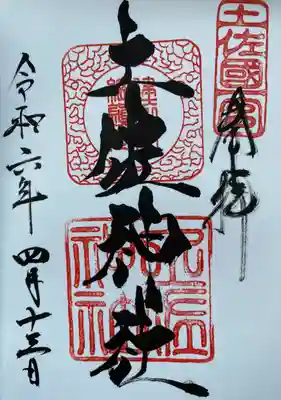 土佐國一宮
奉拝
土佐神社
令和六年 四月十三日